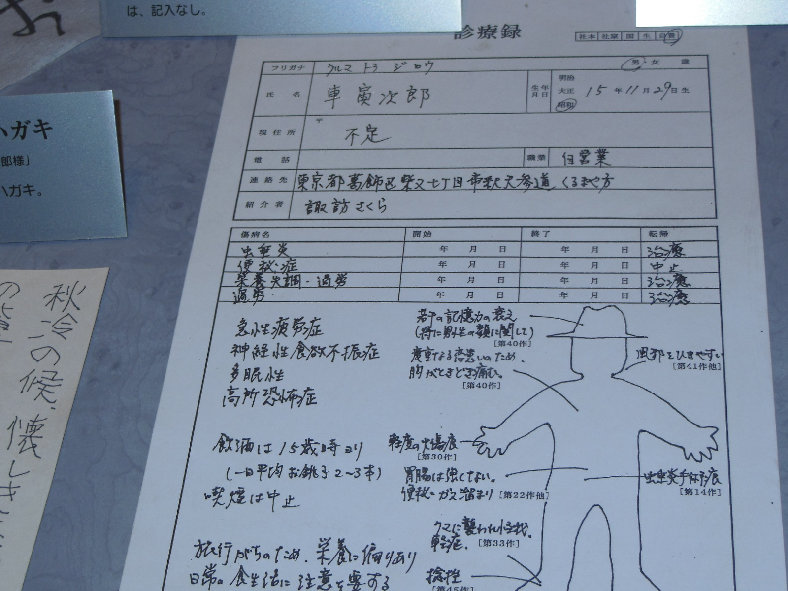 は、記入なし。
診療録
社本 社家 国 生
フリガナ クルマ トラ ジロウ
男・女 歳
氏名 車寅次郎
生年月日 明治 大正 昭和 15年11月29日生
現住所 〒 不定
電話
職業 自営業
連絡先 東京都葛飾区柴又七丁目帝釈天参道 くるまや方
紹介者 諏訪さくら
傷病名 開始 終了 転帰
虫垂炎 年 月 日 年 月 日 治癒
便秘症 年 月 日 年 月 日 中止
栄養失調・過労 年 月 日 年 月 日 治癒
過労 年 月 日 年 月 日 治癒
急性疲労症
神経性食欲不振症
多眠性
高所恐怖症
若干の記憶力の衰え
(特に男性の顔に関して)
[第40作]
度重なる恋患いのため、
胸がときどき痛む。
[第40作]
風邪をひきやすい
[第41作他]
飲酒は15歳時より
(一日平均 お銚子2〜3本)
喫煙は中止
軽度の火傷痕
[第30作]
胃腸は強くない。
便秘・ガス溜まり[第22作他]
虫垂炎手術痕
[第14作]
クマに襲われ
軽症。[第33作]
捻挫
[第45作]
旅行がちのため、栄養に偏りあり
日常の食生活に注意を要する
ハガキ
郎様」
ハガキ。
秋冷の候、懐しき